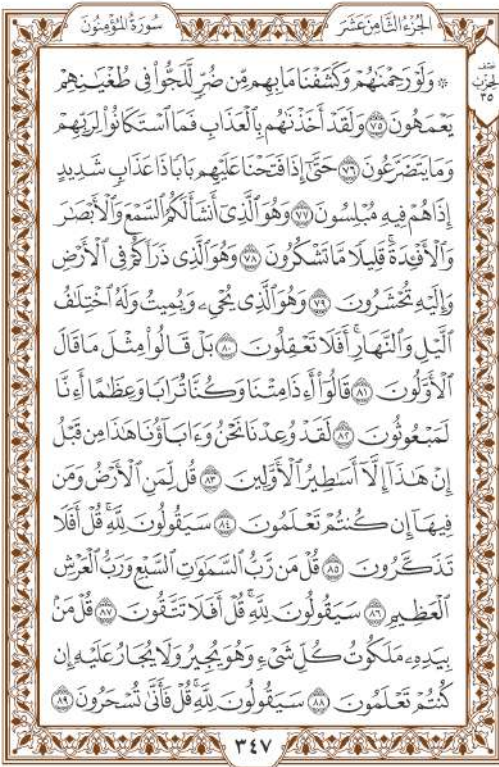 سُورَةُ الْمُؤْمِنُونَ
الْجُزْءُ الثَّامِنَ عَشَرَ
نِصْف
الْحِزْب
٣٥
۞ وَلَوْ رَحِمْنَٰهُمْ وَكَشَفْنَا مَا بِهِم مِّن ضُرٍّ لَّلَجُّوا۟ فِى طُغْيَٰنِهِمْ
يَعْمَهُونَ ۝٧٥ وَلَقَدْ أَخَذْنَٰهُم بِٱلْعَذَابِ فَمَا ٱسْتَكَانُوا۟ لِرَبِّهِمْ
وَمَا يَتَضَرَّعُونَ ۝٧٦ حَتَّىٰٓ إِذَا فَتَحْنَا عَلَيْهِم بَابًا ذَا عَذَابٍ شَدِيدٍ
إِذَا هُمْ فِيهِ مُبْلِسُونَ ۝٧٧ وَهُوَ ٱلَّذِىٓ أَنشَأَ لَكُمُ ٱلسَّمْعَ وَٱلْأَبْصَٰرَ
وَٱلْأَفْـِٔدَةَ ۚ قَلِيلًا مَّا تَشْكُرُونَ ۝٧٨ وَهُوَ ٱلَّذِى ذَرَأَكُمْ فِى ٱلْأَرْضِ
وَإِلَيْهِ تُحْشَرُونَ ۝٧٩ وَهُوَ ٱلَّذِى يُحْىِۦ وَيُمِيتُ وَلَهُ ٱخْتِلَٰفُ
ٱلَّيْلِ وَٱلنَّهَارِ ۚ أَفَلَا تَعْقِلُونَ ۝٨٠ بَلْ قَالُوا۟ مِثْلَ مَا قَالَ
ٱلْأَوَّلُونَ ۝٨١ قَالُوٓا۟ أَءِذَا مِتْنَا وَكُنَّا تُرَابًا وَعِظَٰمًا أَءِنَّا
لَمَبْعُوثُونَ ۝٨٢ لَقَدْ وُعِدْنَا نَحْنُ وَءَابَآؤُنَا هَٰذَا مِن قَبْلُ
إِنْ هَٰذَآ إِلَّآ أَسَٰطِيرُ ٱلْأَوَّلِينَ ۝٨٣ قُل لِّمَنِ ٱلْأَرْضُ وَمَن
فِيهَآ إِن كُنتُمْ تَعْلَمُونَ ۝٨٤ سَيَقُولُونَ لِلَّهِ ۚ قُلْ أَفَلَا
تَذَكَّرُونَ ۝٨٥ قُلْ مَن رَّبُّ ٱلسَّمَٰوَٰتِ ٱلسَّبْعِ وَرَبُّ ٱلْعَرْشِ
ٱلْعَظِيمِ ۝٨٦ سَيَقُولُونَ لِلَّهِ ۚ قُلْ أَفَلَا تَتَّقُونَ ۝٨٧ قُلْ مَنۢ
بِيَدِهِۦ مَلَكُوتُ كُلِّ شَىْءٍ وَهُوَ يُجِيرُ وَلَا يُجَارُ عَلَيْهِ إِن
كُنتُمْ تَعْلَمُونَ ۝٨٨ سَيَقُولُونَ لِلَّهِ ۚ قُلْ فَأَنَّىٰ تُسْحَرُونَ ۝٨٩
٣٤٧